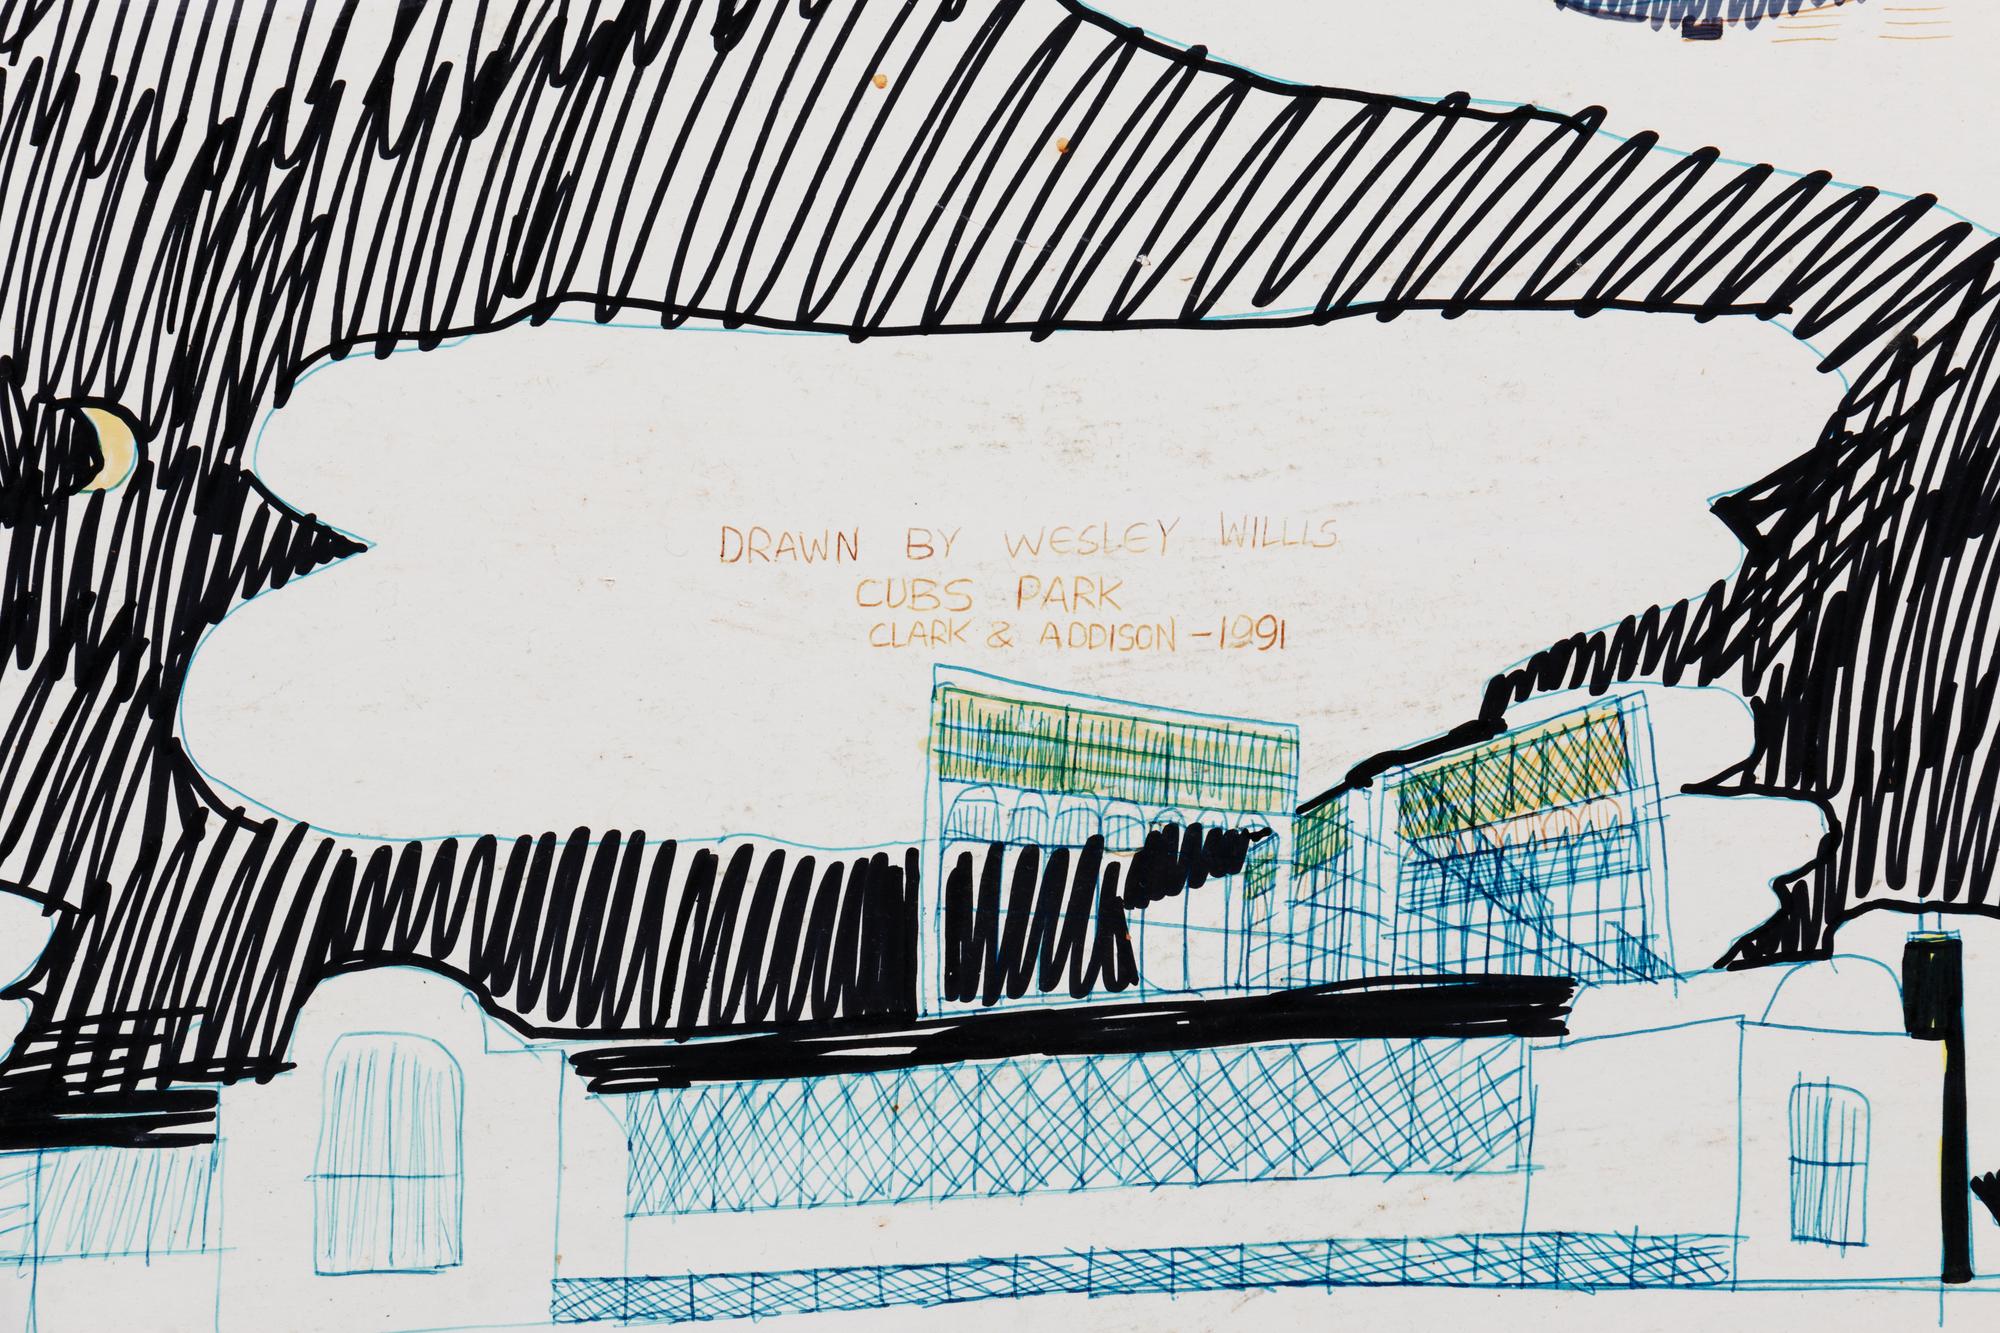 DRAWN BY WESLEY WILLIS
CUBS PARK
CLARK & ADDISON - 1991